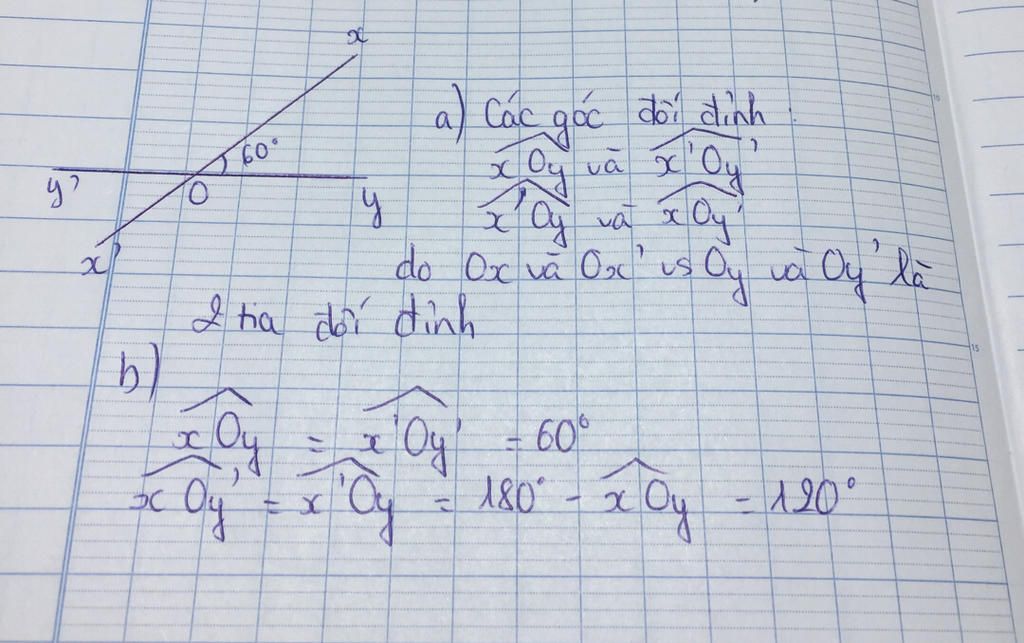 x
60°
y'
O
y
x'
a) Các góc đối đỉnh :
xOy và x'Oy'
x'Oy và xOy'
do Ox và Ox' vs Oy và Oy' là
2 tia đối đỉnh
b)
xOy = x'Oy' = 60°
xOy' = x'Oy = 180° - xOy = 120°